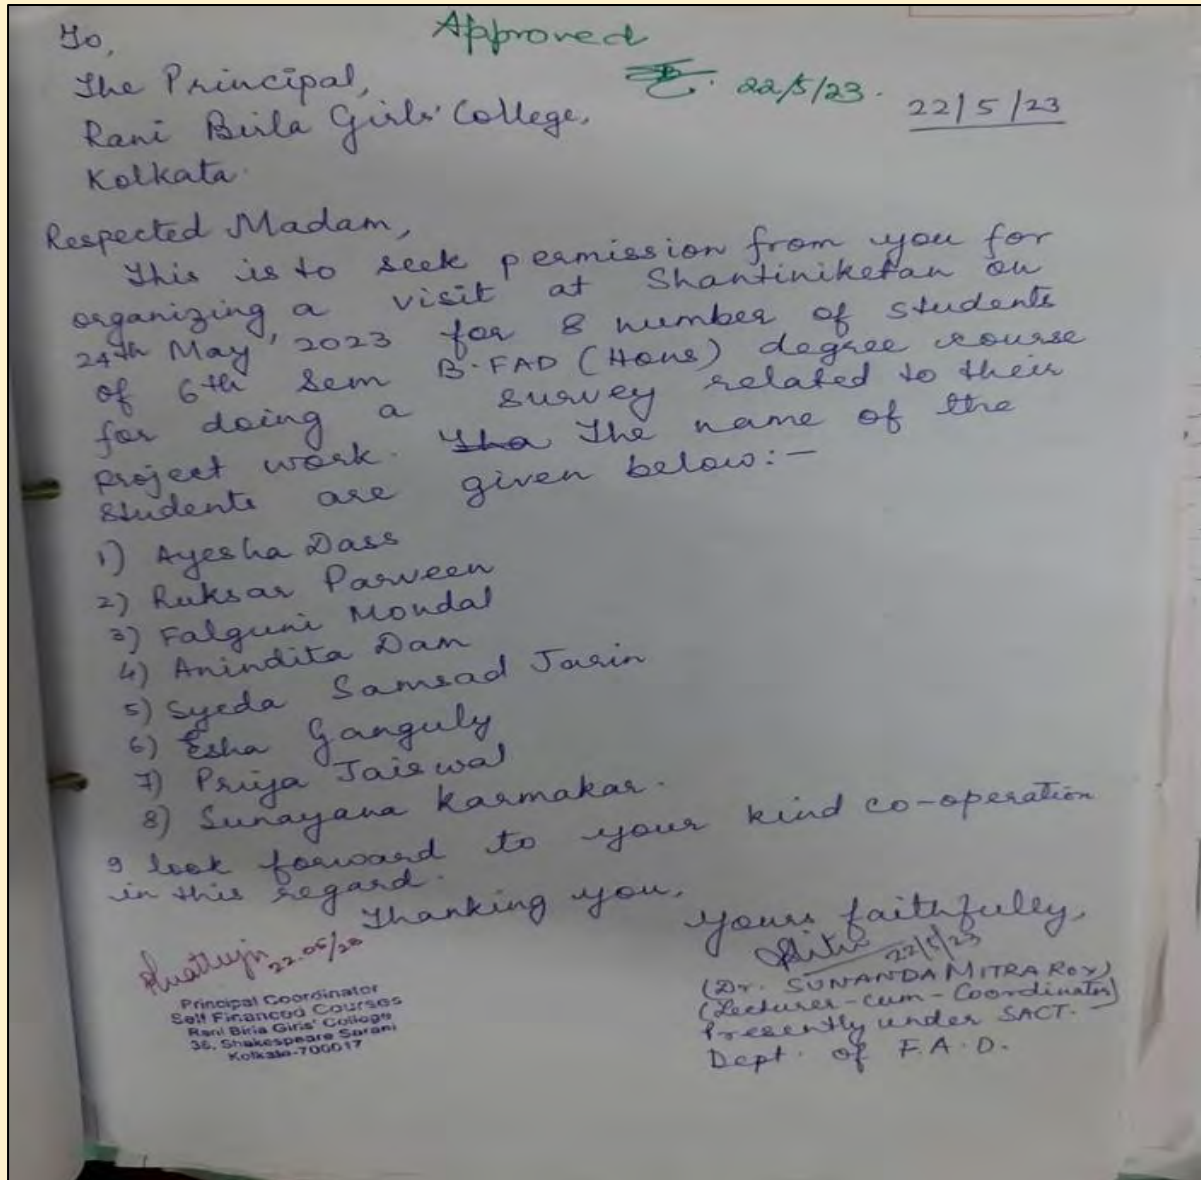 To,
Approved
22/5/23.
The Principal,
22/5/23
Rani Birla Girls' College,
Kolkata.
Respected Madam,
This is to seek permission from you for
organizing a visit at Shantiniketan on
24th May, 2023 for 8 number of students
of 6th Sem B.FAD (Hons) degree course
for doing a survey related to their
project work. Tha The name of the
students are given below:-
1) Ayesha Dass
2) Ruksar Parveen
3) Falguni Mondal
4) Anindita Dam
5) Syeda Samsad Jarin
6) Esha Ganguly
7) Priya Jaiswal
8) Sunayana Karmakar.
I look forward to your kind co-operation
in this regard.
Thanking you,
Yours faithfully,
22/5/23
(Dr. SUNANDA MITRA ROY)
(Lecturer-cum-Coordinator)
Presently under SACT.
Dept. of F.A.D.
Principal Coordinator
Self Financed Courses
Rani Birla Girls' College
38, Shakespeare Sarani
Kolkata-700017